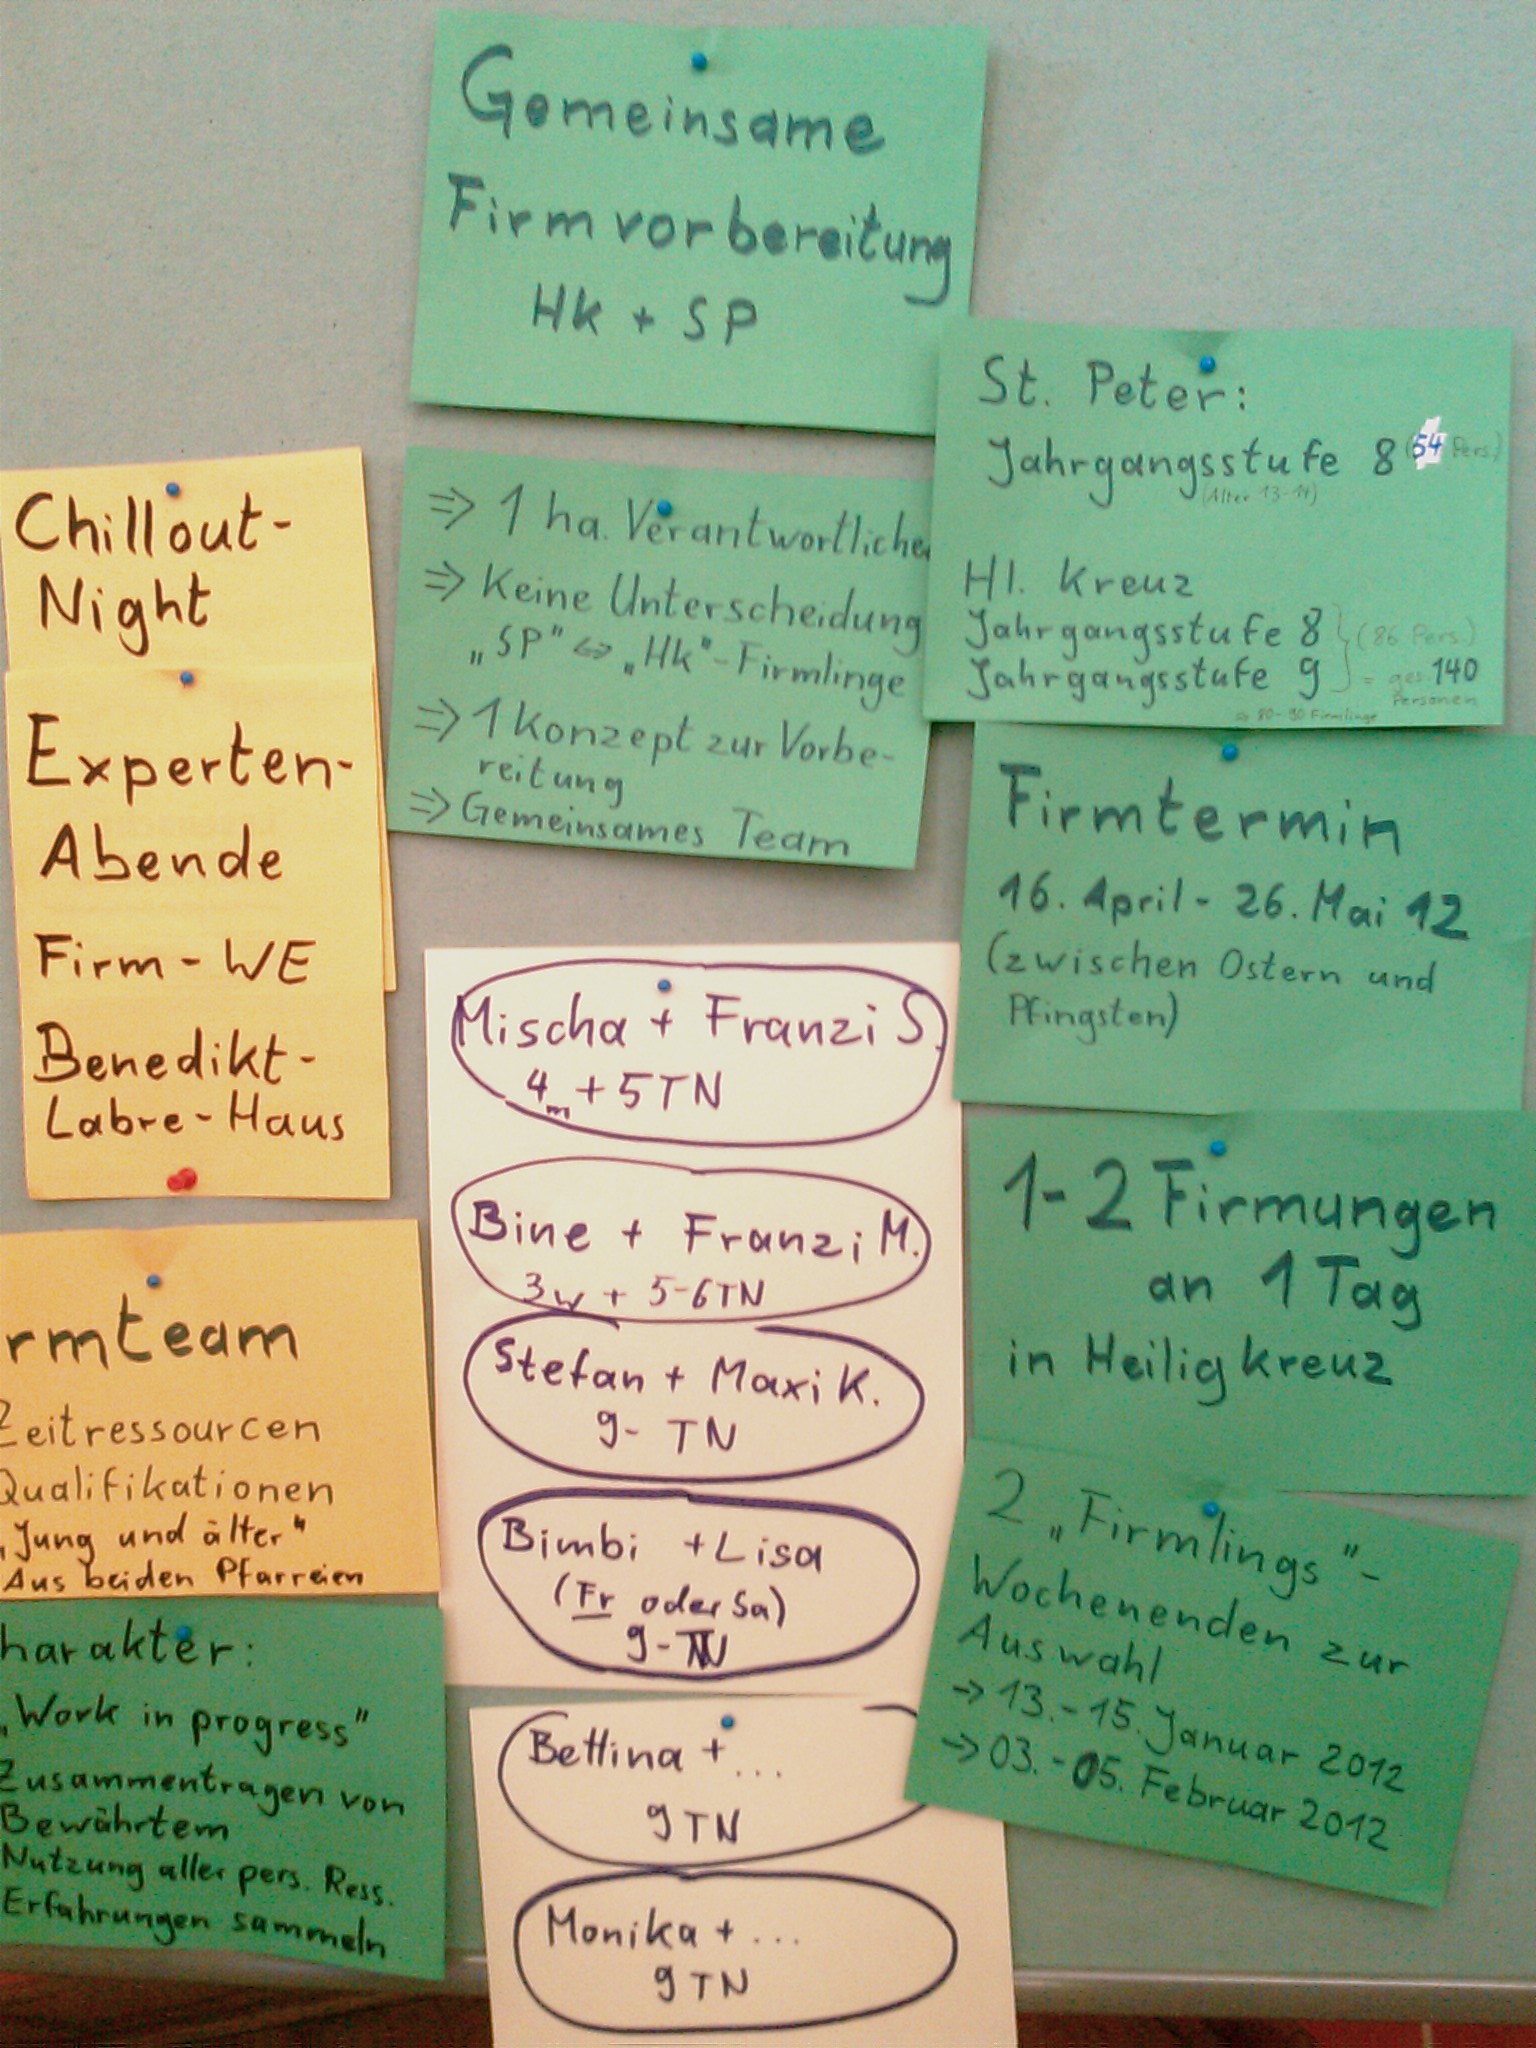 Gemeinsame
Firmvorbereitung
HK + SP
St. Peter:
Jahrgangsstufe 8 (54 Pers.)
(Alter 13-14)
Hl. Kreuz
Jahrgangsstufe 8
Jahrgangsstufe 9
(86 Pers.)
= ges. 140
Personen
⇒ 80-90 Firmlinge
⇒ 1 ha. Verantwortliche
⇒ Keine Unterscheidung
„SP" ⇔ „HK"-Firmlinge
⇒ 1 Konzept zur Vorbe-
reitung
⇒ Gemeinsames Team
Chillout-
Night
Experten-
Abende
Firm-WE
Benedikt-
Labre-Haus
Firmtermin
16. April - 26. Mai 12
(zwischen Ostern und
Pfingsten)
Mischa + Franzi S.
4m + 5TN
Bine + Franzi M.
3w + 5-6TN
Stefan + Maxi K.
9- TN
Bimbi + Lisa
(Fr oder Sa)
9-TN
Bettina + ...
9 TN
Monika + ...
9 TN
1-2 Firmungen
an 1 Tag
in Heilig Kreuz
2 „Firmlings"-
Wochenenden zur
Auswahl
→ 13.-15. Januar 2012
→ 03.-05. Februar 2012
rmteam
Zeitressourcen
Qualifikationen
„Jung und älter"
Aus beiden Pfarreien
harakter:
„Work in progress"
Zusammentragen von
Bewährtem
Nutzung aller pers. Ress.
Erfahrungen sammeln